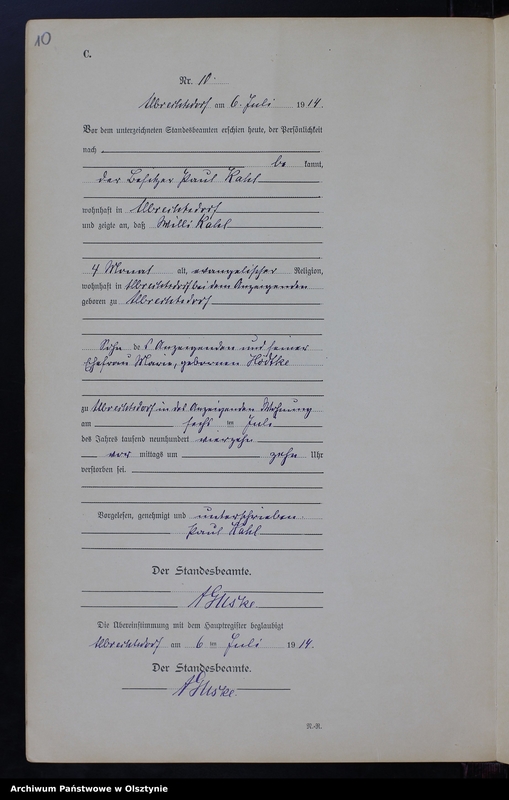 10
C.
Nr. 10.
Albrechtsdorf am 6. Juli 1914.
Vor dem unterzeichneten Standesbeamten erschien heute, der Persönlichkeit
nach
be kannt,
der Besitzer Paul Kahl
wohnhaft in Albrechtsdorf
und zeigte an, daß Willi Kahl
4 Monat alt, evangelischer Religion,
wohnhaft in Albrechtsdorf bei dem Anzeigenden
geboren zu Albrechtsdorf
Sohn des Anzeigenden und seiner
Ehefrau Marie, geborenen Hödtke
zu Albrechtsdorf in des Anzeigenden Wohnung
am sechsten Juli
des Jahres tausend neunhundert vierzehn
vor mittags um zehn Uhr
verstorben sei.
Vorgelesen, genehmigt und unterschrieben.
Paul Kahl
Der Standesbeamte.
Die Übereinstimmung mit dem Hauptregister beglaubigt
Albrechtsdorf am 6 ten Juli 1914.
Der Standesbeamte.
N.-R.
Archiwum Państwowe w Olsztynie